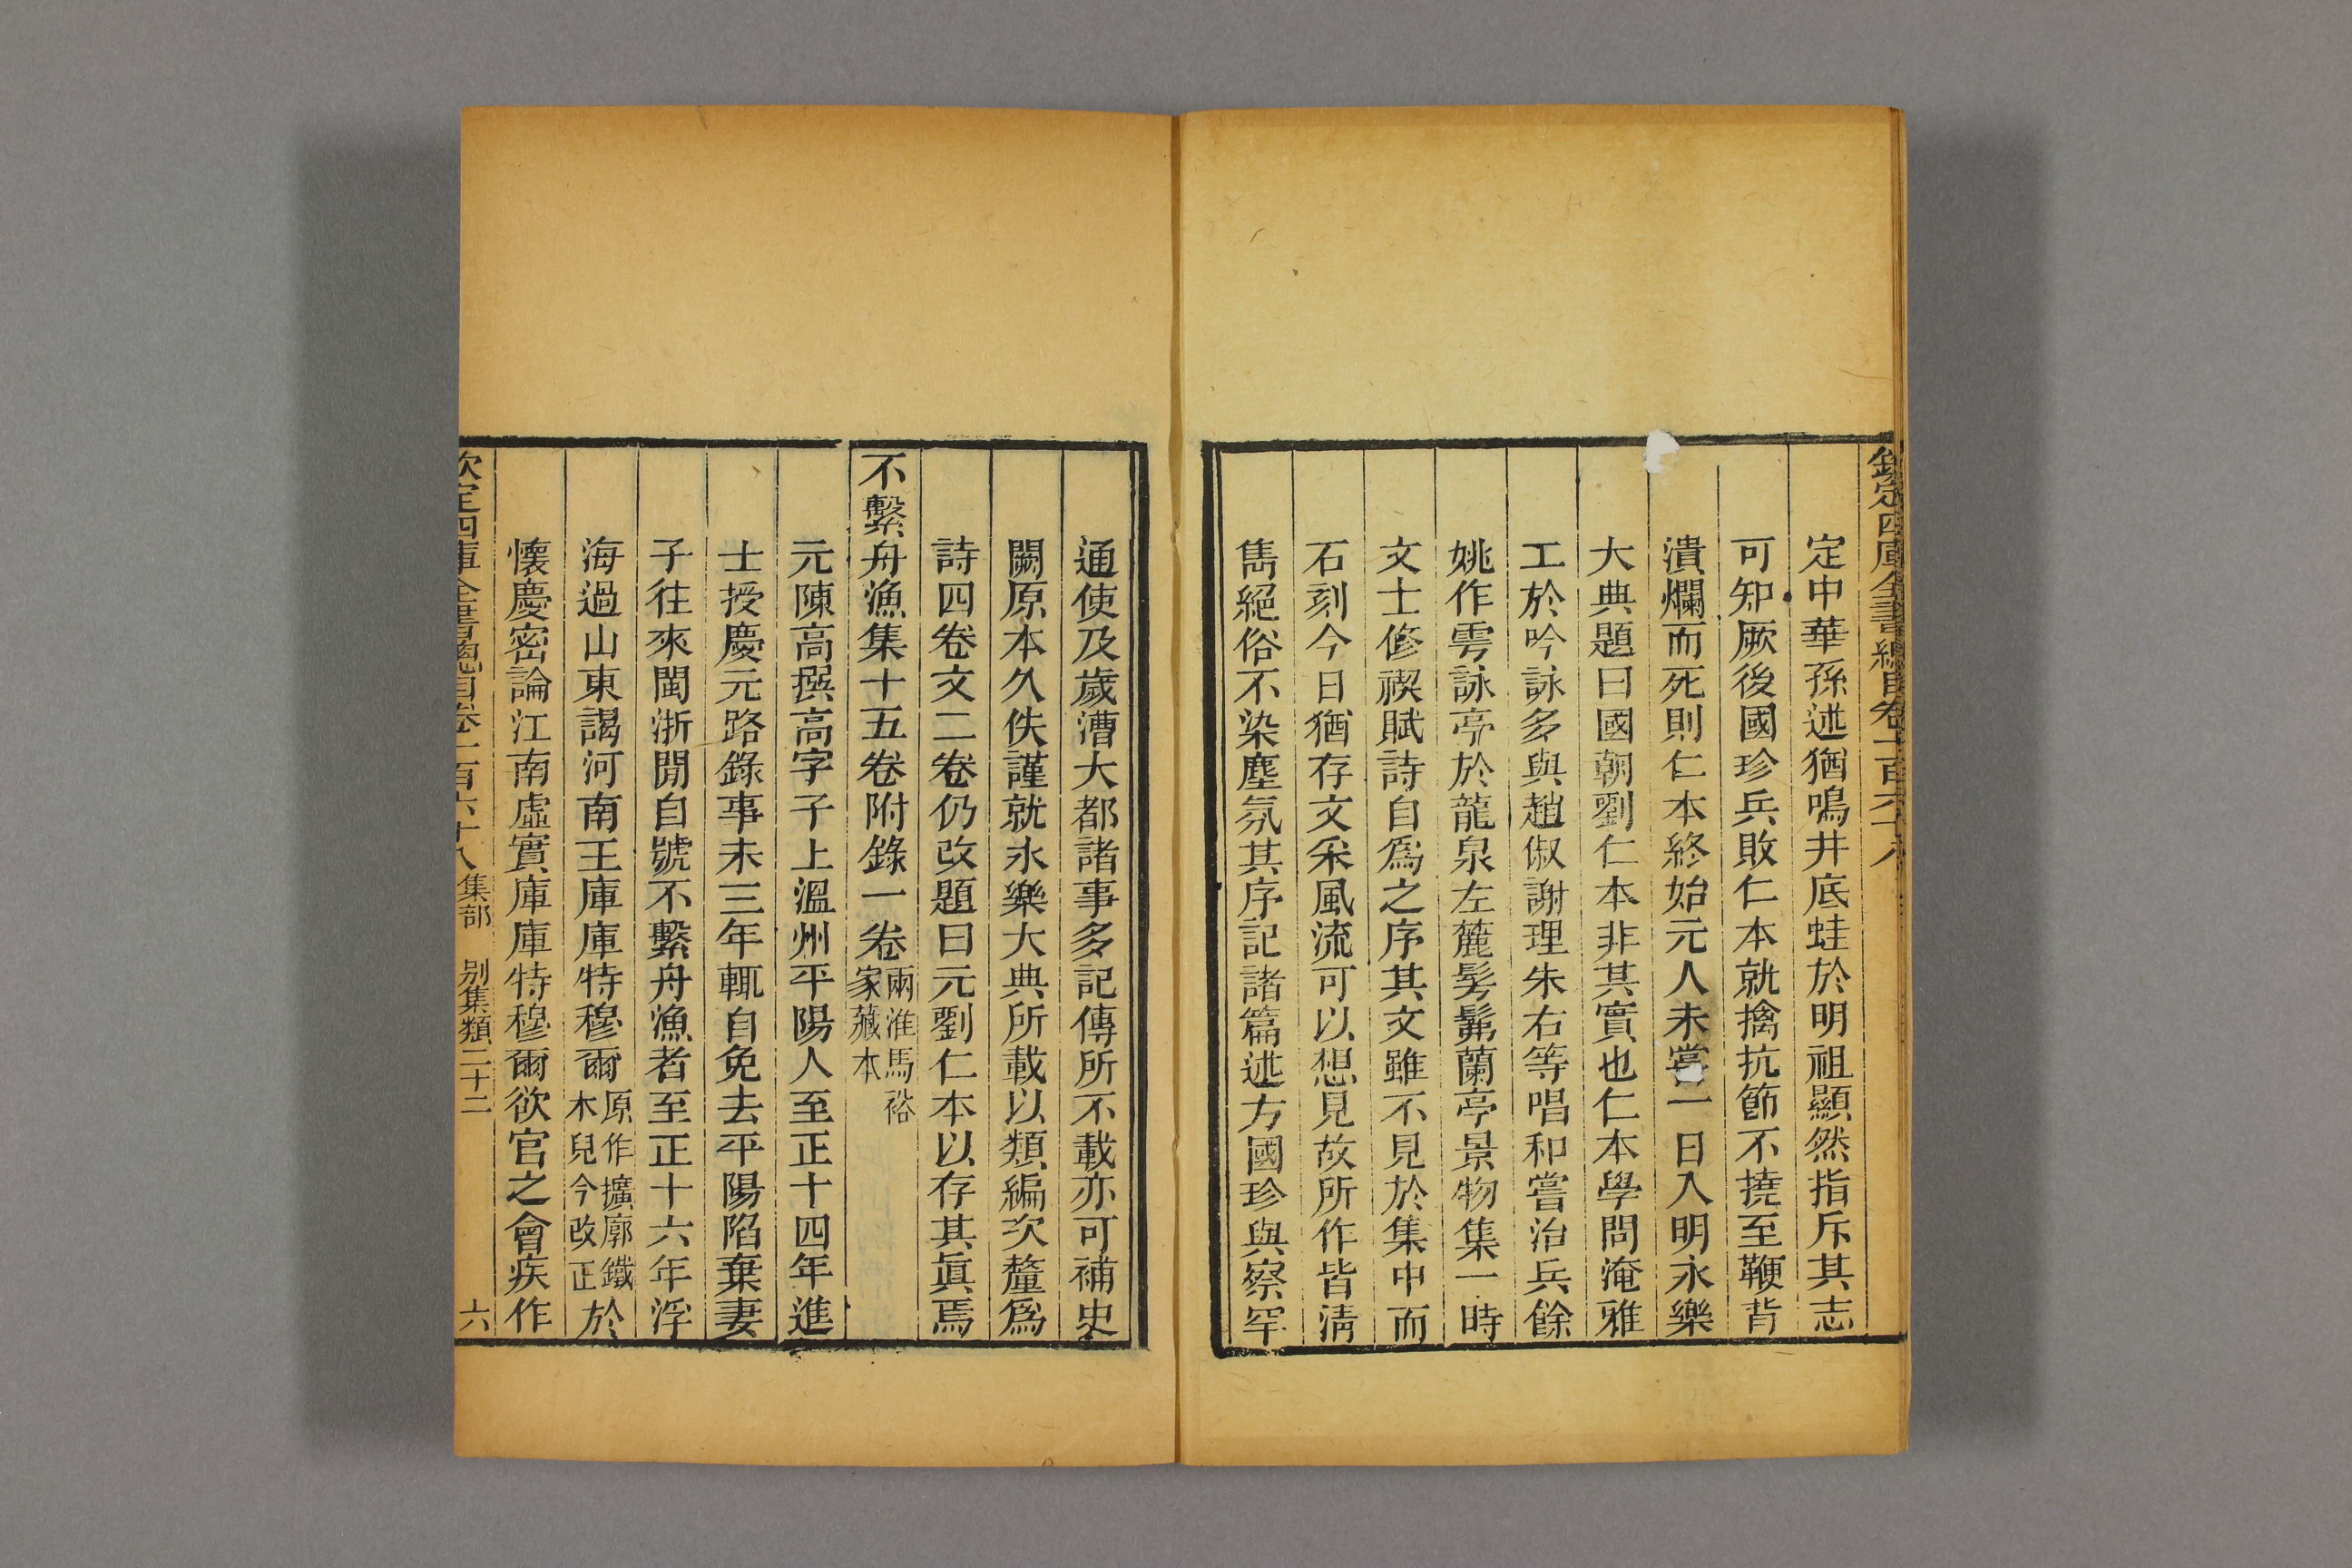 欽定四庫全書總目卷一百六十八
定中華孫述猶鳴井底蛙於明祖顯然指斥其志
可知厥後國珍兵敗仁本就擒抗節不撓至鞭背
潰爛而死則仁本終始元人未嘗一日入明永樂
大典題曰國朝劉仁本非其實也仁本學問淹雅
工於吟詠多與趙俶謝理朱右等唱和嘗治兵餘
姚作雩詠亭於龍泉左麓髣髴蘭亭景物集一時
文士修禊賦詩自爲之序其文雖不見於集中而
石刻今日猶存文采風流可以想見故所作皆淸
雋絕俗不染塵氛其序記諸篇述方國珍與察罕
通使及歲漕大都諸事多記傳所不載亦可補史
闕原本久佚謹就永樂大典所載以類編次釐爲
詩四卷文二卷仍改題曰元劉仁本以存其眞焉
不繫舟漁集十五卷附錄一卷兩淮馬裕家藏本
元陳高撰高字子上溫州平陽人至正十四年進
士授慶元路錄事未三年輒自免去平陽陷棄妻
子往來閩浙閒自號不繫舟漁者至正十六年浮
海過山東謁河南王庫庫特穆爾原作擴廓鐵木兒今改正於
懷慶密論江南虛實庫庫特穆爾欲官之會疾作
欽定四庫全書總目卷一百六十八 集部 別集類二十二 六